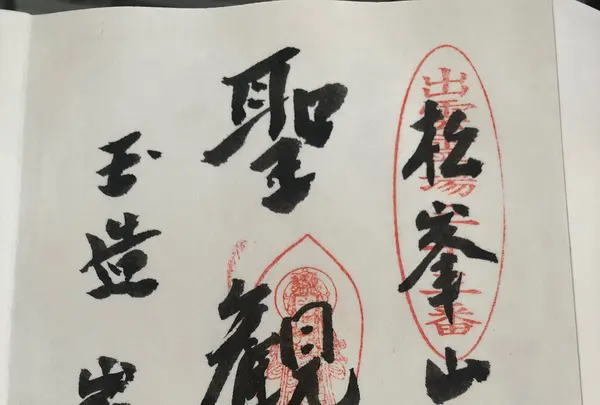 出雲霊場番
松峯山
聖観
玉造